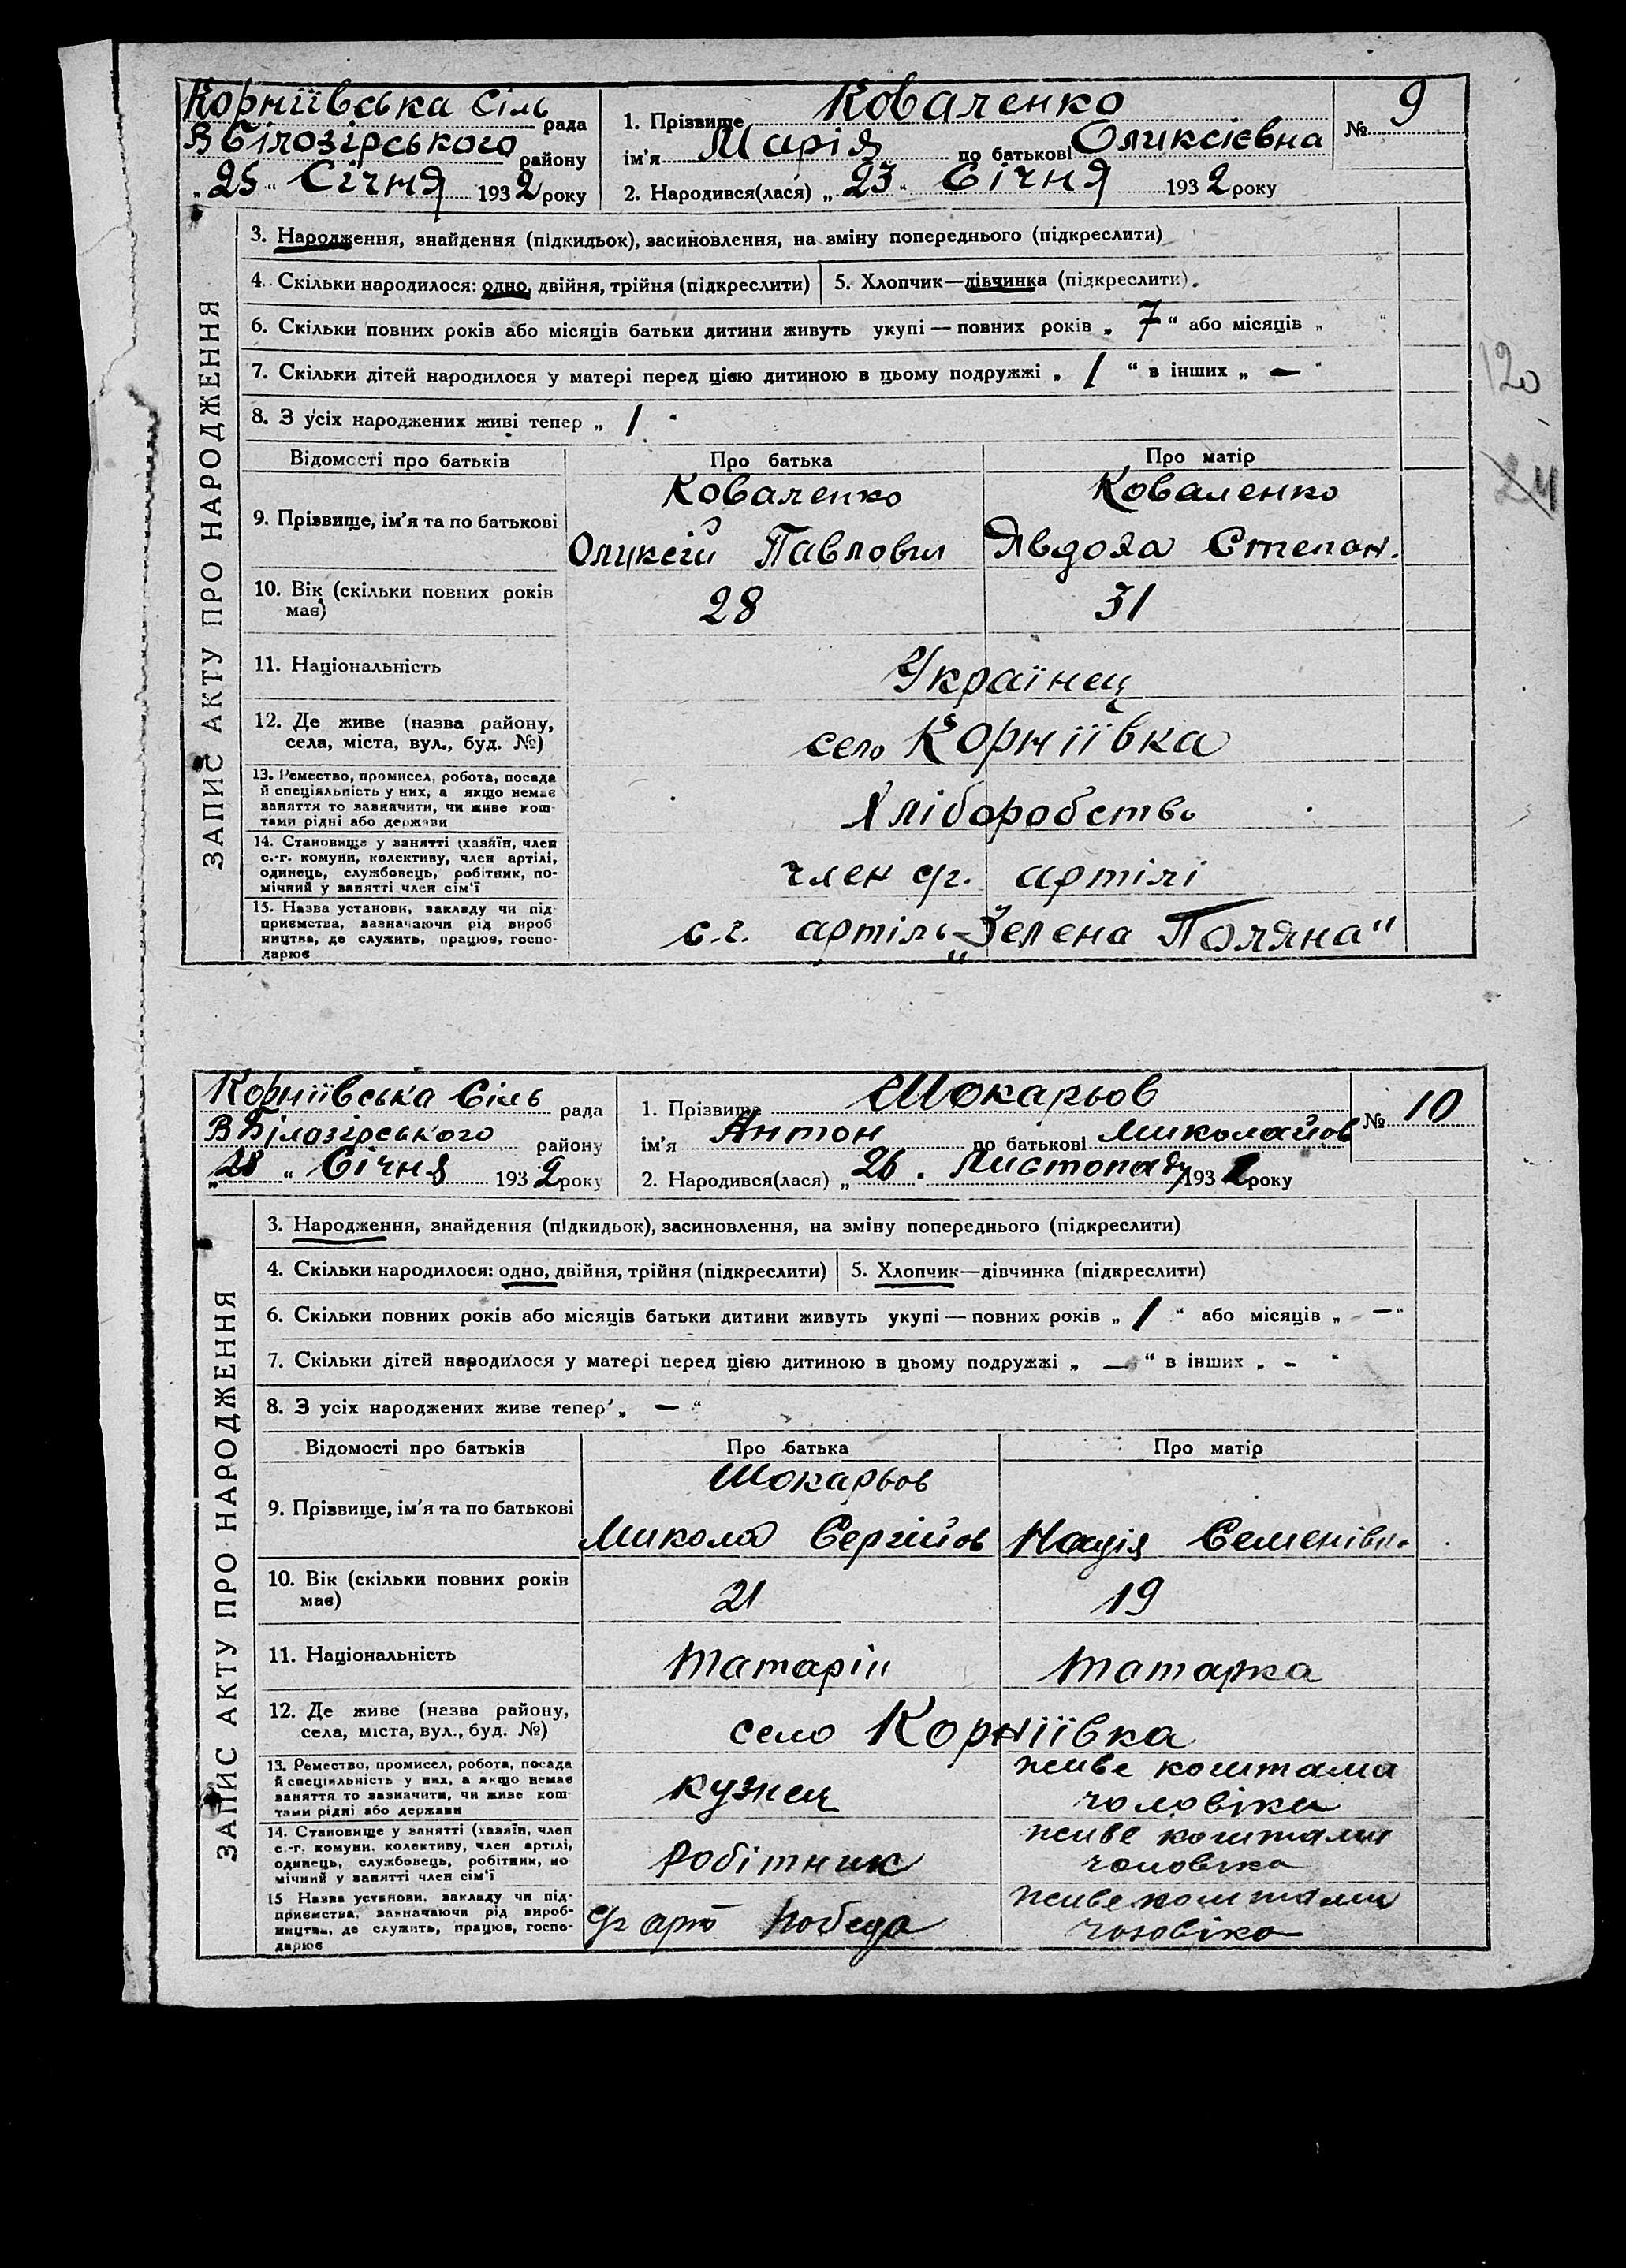 Корніївська Сіль рада
В Білозірського району
„ 25 “ Січня 1932 року
1. Прізвище Коваленко
ім'я Марія по батькові Оликсієвна
2. Народився(лася) „ 23 “ Січня 1932 року
№ 9
ЗАПИС АКТУ ПРО НАРОДЖЕННЯ
3. Народження, знайдення (підкидьок), засиновлення, на зміну попереднього (підкреслити)
4. Скільки народилося: одно, двійня, трійня (підкреслити) 5. Хлопчик—дівчинка (підкреслити).
6. Скільки повних років або місяців батьки дитини живуть укупі — повних років „ 7 “ або місяців „ “
7. Скільки дітей народилося у матері перед цією дитиною в цьому подружжі „ 1 “ в інших „ — “
8. З усіх народжених живі тепер „ 1 “
120
24
Відомості про батьків Про батька Про матір
Коваленко Коваленко
9. Прізвище, ім'я та по батькові
Оликсій Павлович Явдоха Степан.
10. Вік (скільки повних років
має) 28 31
11. Національність Українец
12. Де живе (назва району,
села, міста, вул., буд. №) село Корніївка
13. Ремество, промисел, робота, посада
й спеціяльність у них, а якщо немає
заняття то зазначити, чи живе кош-
тами рідні або держави
Хліборобство
14. Становище у занятті (хазяїн, член
с.-г. комуни, колективу, член артілі,
одинець, службовець, робітник, по-
мічний у занятті член сім'ї
член с.г. артілі
15. Назва установи, закладу чи під-
приємства, зазначаючи рід вироб-
ництва, де служить, працює, госпо-
дарює
с.г. артіль „Зелена Поляна"
Корніївська Сіль рада
В Білазірського району
„ 28 “ Січня 1932 року
1. Прізвище Шокарьов
ім'я Антон по батькові Миколайов
2. Народився(лася) „ 26 . Листопаду 1931 року
№ 10
ЗАПИС АКТУ ПРО НАРОДЖЕННЯ
3. Народження, знайдення (підкидьок), засиновлення, на зміну попереднього (підкреслити)
4. Скільки народилося: одно, двійня, трійня (підкреслити) 5. Хлопчик—дівчинка (підкреслити)
6. Скільки повних років або місяців батьки дитини живуть укупі — повних років „ 1 “ або місяців „ — “
7. Скільки дітей народилося у матері перед цією дитиною в цьому подружжі „ — “ в інших „ — “
8. З усіх народжених живе тепер „ — “
Відомості про батьків Про батька Про матір
Шокарьов
9. Прізвище, ім'я та по батькові
Микола Сергійов Надія Семенівн.
10. Вік (скільки повних років
має) 21 19
11. Національність татарін татарка
12. Де живе (назва району,
села, міста, вул., буд. №) село Корніївка
13. Ремество, промисел, робота, посада
й спеціяльність у них, а якщо немає
заняття то зазначити, чи живе кош-
тами рідні або держави
кузнец живе коштами
чоловіка
14. Становище у занятті (хазяїн, член
с.-г. комуни, колективу, член артілі,
одинець, службовець, робітник, по-
мічний у занятті член сім'ї
робітник живе коштами
чоловіка
15 Назва установи, закладу чи під-
приємства, зазначаючи рід вироб-
ництва, де служить, працює, госпо-
дарює
с/г арт Победа живе коштами
чоловіка